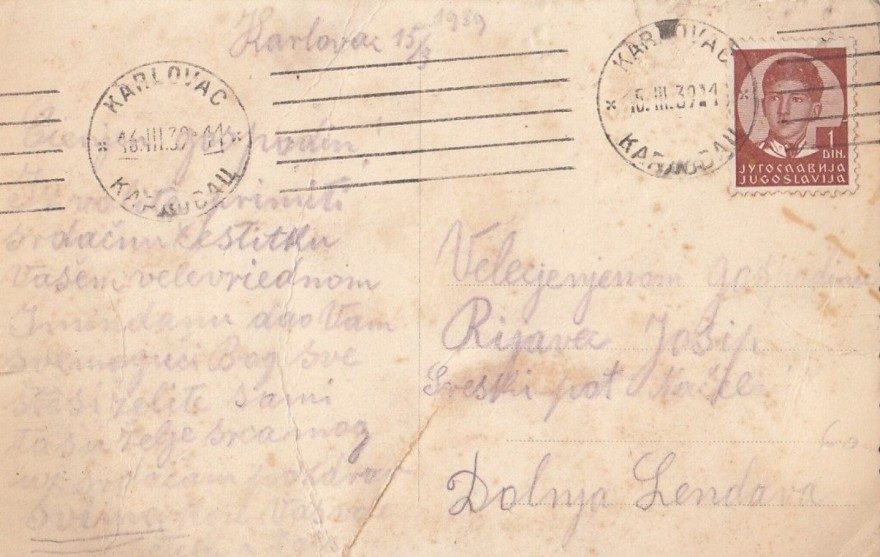 Karlovac 15/3 1939
KARLOVAC
16.III.39.-11
КАРЛОВАЦ
KARLOVAC
15.III.39.11
КАРЛОВАЦ
1
DIN.
ЈУГОСЛАВИЈА
JUGOSLAVIJA
primiti
srdačnu čestitku
Vašem velevriednom
Imendanu dao Vam
svemogući Bog sve
šta si želite sami
to su želje srca mog
uz srdačan pozdrav
Velecjenjenom gospodinu
Rijavec Josip
Sreski pot
Dolnja Lendava